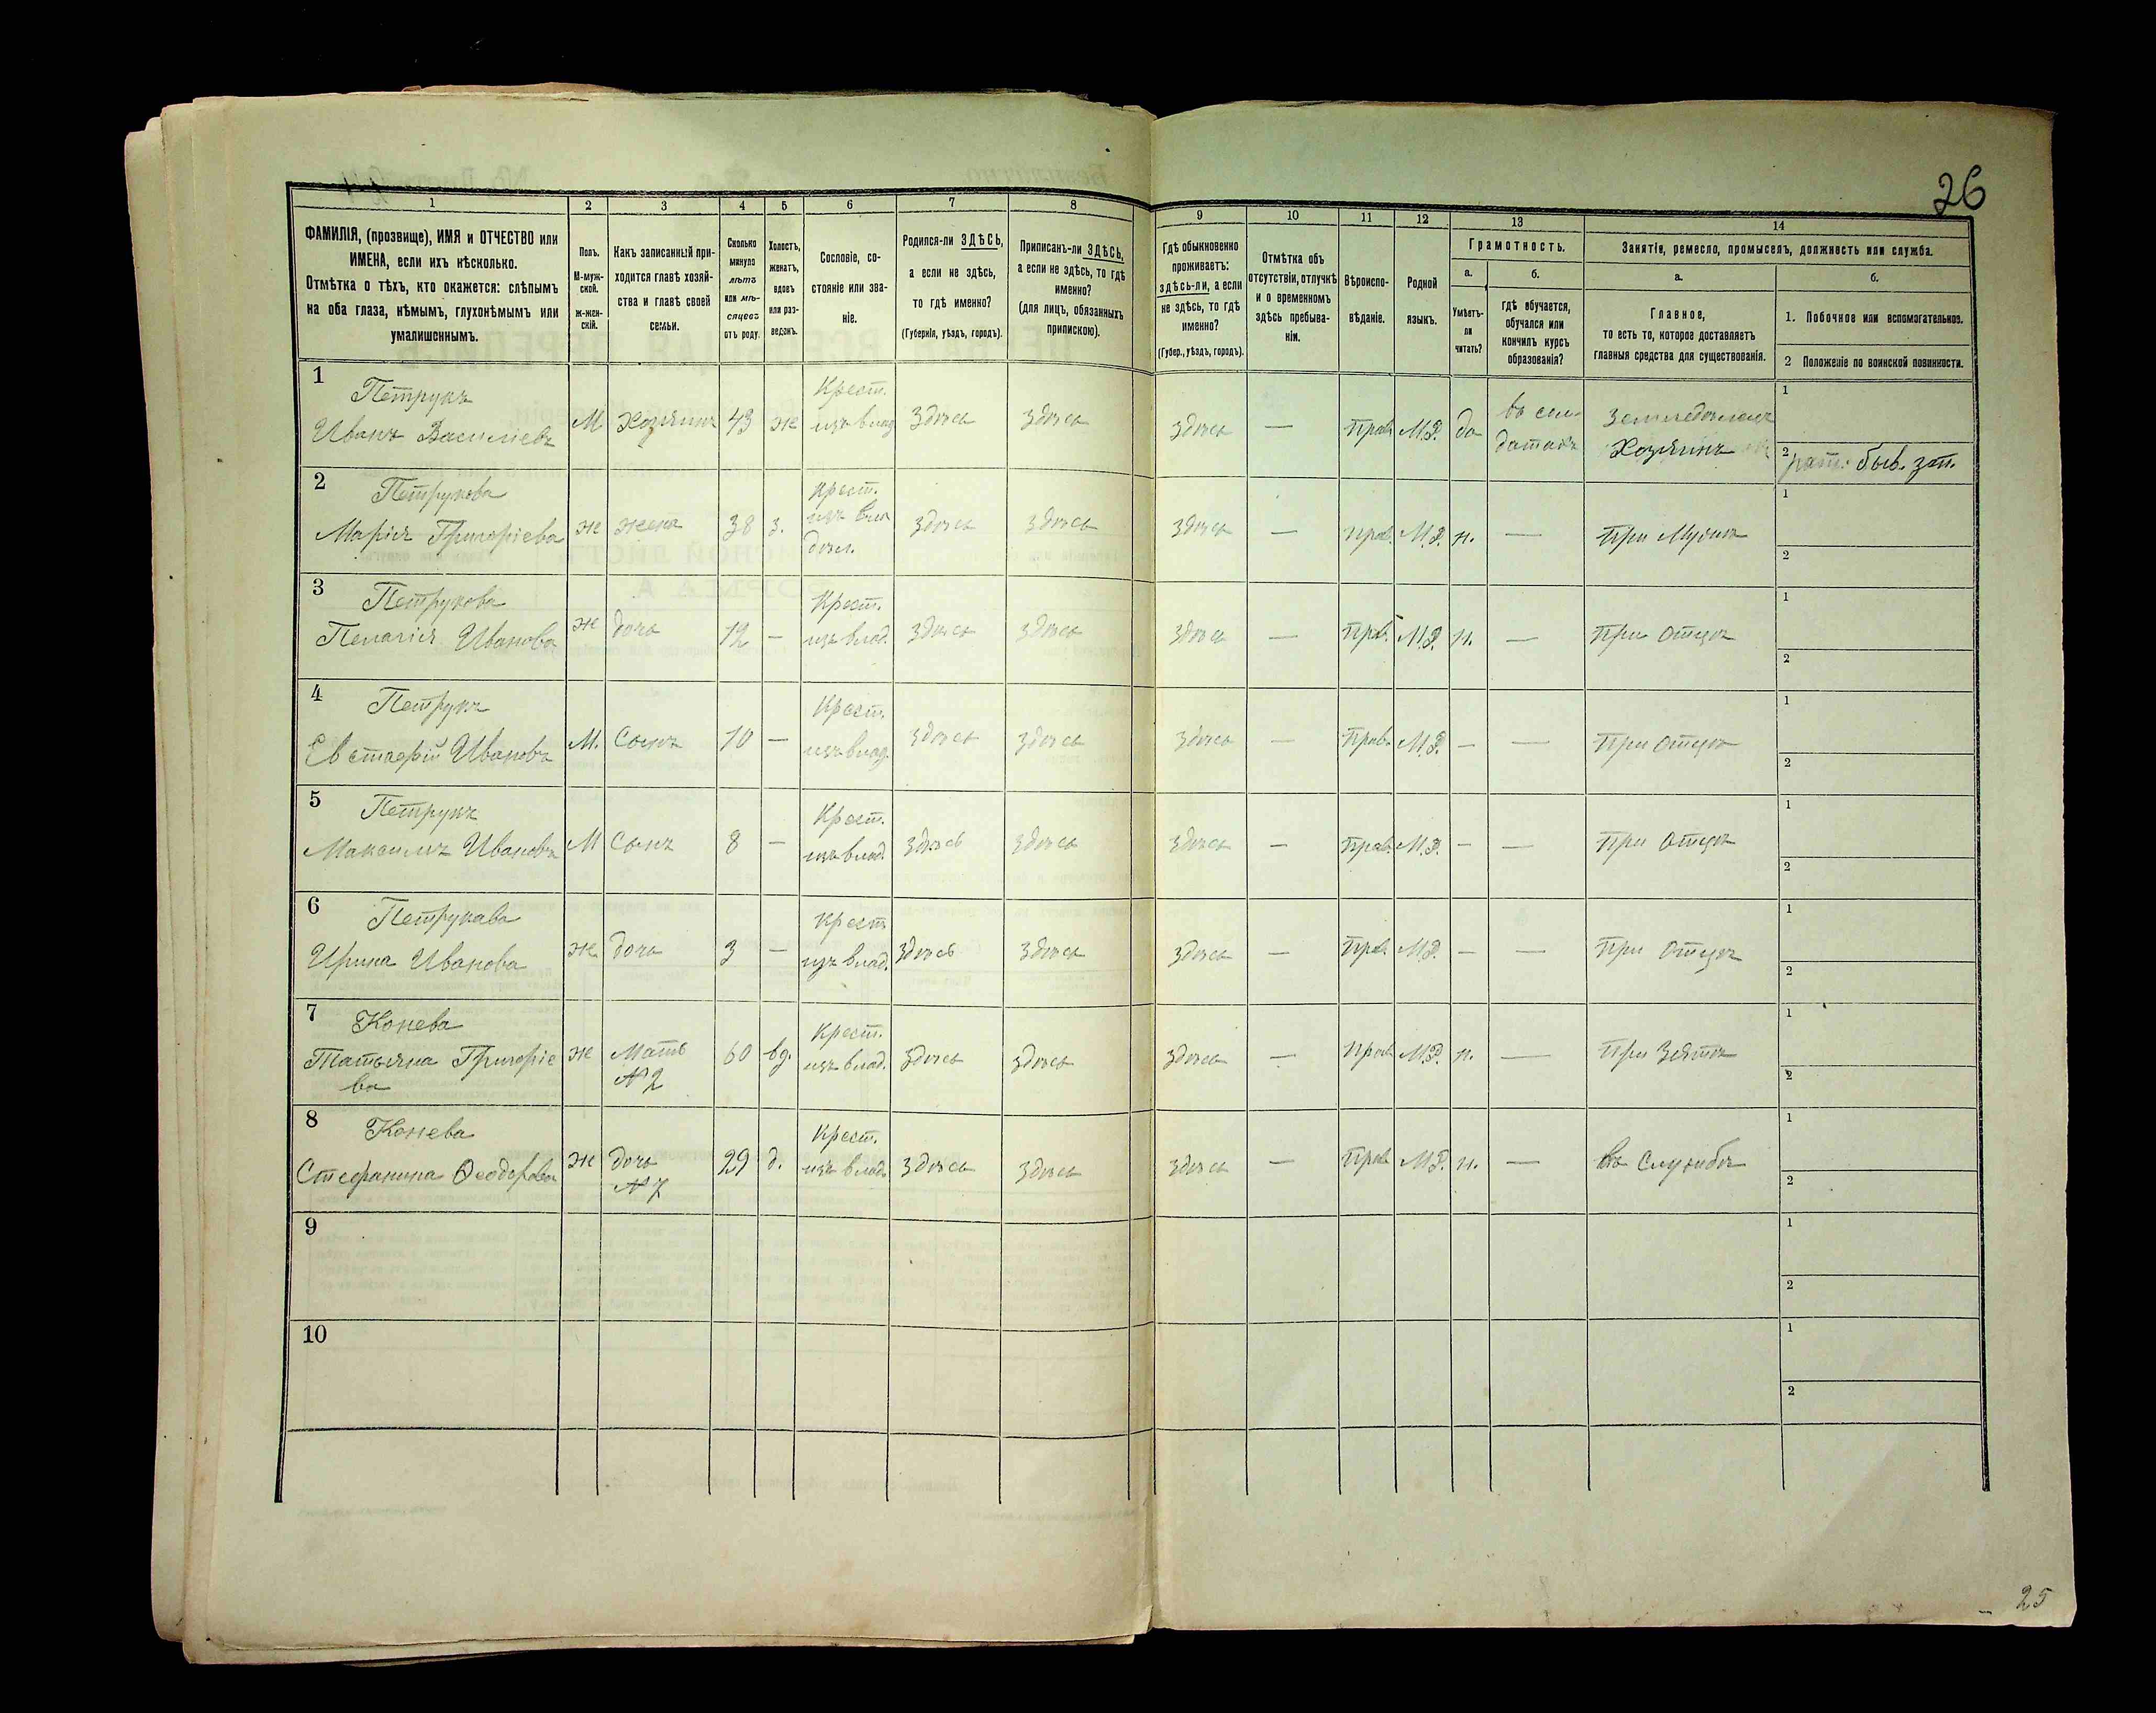 26
1
ФАМИЛІЯ, (прозвище), ИМЯ и ОТЧЕСТВО или
ИМЕНА, если ихъ нѣсколько.
Отмѣтка о тѣхъ, кто окажется: слѣпымъ
на оба глаза, нѣмымъ, глухонѣмымъ или
умалишеннымъ.
2
Полъ.
М-муж-
ской.
ж-жен-
скій.
3
Какъ записанный при-
ходится главѣ хозяй-
ства и главѣ своей
семьи.
4
Сколько
минуло
лѣтъ
или мѣ-
сяцевъ
отъ роду.
5
Холостъ,
женатъ,
вдовъ
или раз-
веденъ.
6
Сословіе, со-
стояніе или зва-
ніе.
7
Родился-ли ЗДѢСЬ,
а если не здѣсь,
то гдѣ именно?
(Губернія, уѣздъ, городъ).
8
Приписанъ-ли ЗДѢСЬ,
а если не здѣсь, то гдѣ
именно?
(для лицъ, обязанныхъ
припискою).
9
Гдѣ обыкновенно
проживаетъ:
здѣсь-ли, а если
не здѣсь, то гдѣ
именно?
(Губер., уѣздъ, городъ).
10
Отмѣтка объ
отсутствіи, отлучкѣ
и о временномъ
здѣсь пребыва-
ніи.
11
Вѣроиспо-
вѣданіе.
12
Родной
языкъ.
13
Грамотность.
а.
Умѣетъ-
ли
читать?
б.
Гдѣ обучается,
обучался или
кончилъ курсъ
образованія?
14
Занятія, ремесло, промыселъ, должность или служба.
а.
Главное,
то есть то, которое доставляетъ
главныя средства для существованія.
б.
1. Побочное или вспомогательное.
2 Положеніе по воинской повинности.
1
Петрукъ
Иванъ Василіевъ
М. Хозяинъ 43 ж
Крест.
изъ влад
здѣсь здѣсь здѣсь — Прав. М.Р. да
въ сол-
датахъ
Земледѣлецъ
Хозяинъ
1
2
рат. быв. зап.
2
Петрукова
Марія Григоріева
ж жена 38 з.
Крест.
изъ вла
дѣл.
здѣсь здѣсь здѣсь — прав. М.Р. н. — При Мужѣ
1
2
3
Петрукова
Пелагія Иванова
ж дочь 12 —
Крест.
изъ влад.
здѣсь здѣсь здѣсь — Прав. М.Р. н. — При Отцѣ
1
2
4
Петрукъ
Евстафій Ивановъ
М. Сынъ 10 —
Крест.
изъ влад.
здѣсь здѣсь здѣсь — Прав. М.Р. — — При Отцѣ
1
2
5
Петрукъ
Максимъ Ивановъ
М Сынъ 8 —
Крест.
изъ влад.
здѣсь здѣсь здѣсь — Прав. М.Р. — — При Отцѣ
1
2
6
Петрукава
Ирина Иванова
ж. дочь 3 —
Крест
изъ влад.
здѣсь здѣсь здѣсь — Прав. М.Р. — — При Отцѣ
1
2
7
Конева
Татьяна Григоріе
ва
ж Мать
№ 2
60 вд.
Крест.
изъ влад.
здѣсь здѣсь здѣсь — Прав М.Р. н. — При Зятѣ
1
2
8
Конева
Стефанина Ѳеодорова
ж дочь
№ 7
29 д.
Крест.
изъ влад.
здѣсь здѣсь здѣсь — Прав М.Р. н. — въ Службѣ
1
2
9
1
2
10
1
2
25